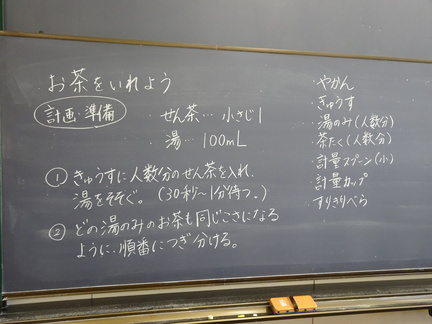 お茶をいれよう
計画・準備
せん茶… 小さじ1
・湯… 100mL
① きゅうすに人数分のせん茶を入れ、
湯をそそぐ。(30秒～1分待つ。)
② どの湯のみのお茶も同じこさになる
ように、順番につぎ分ける。
・やかん
・きゅうす
・湯のみ(人数分)
・茶たく(人数分)
・計量スプーン(小)
・計量カップ
・すりきりべら